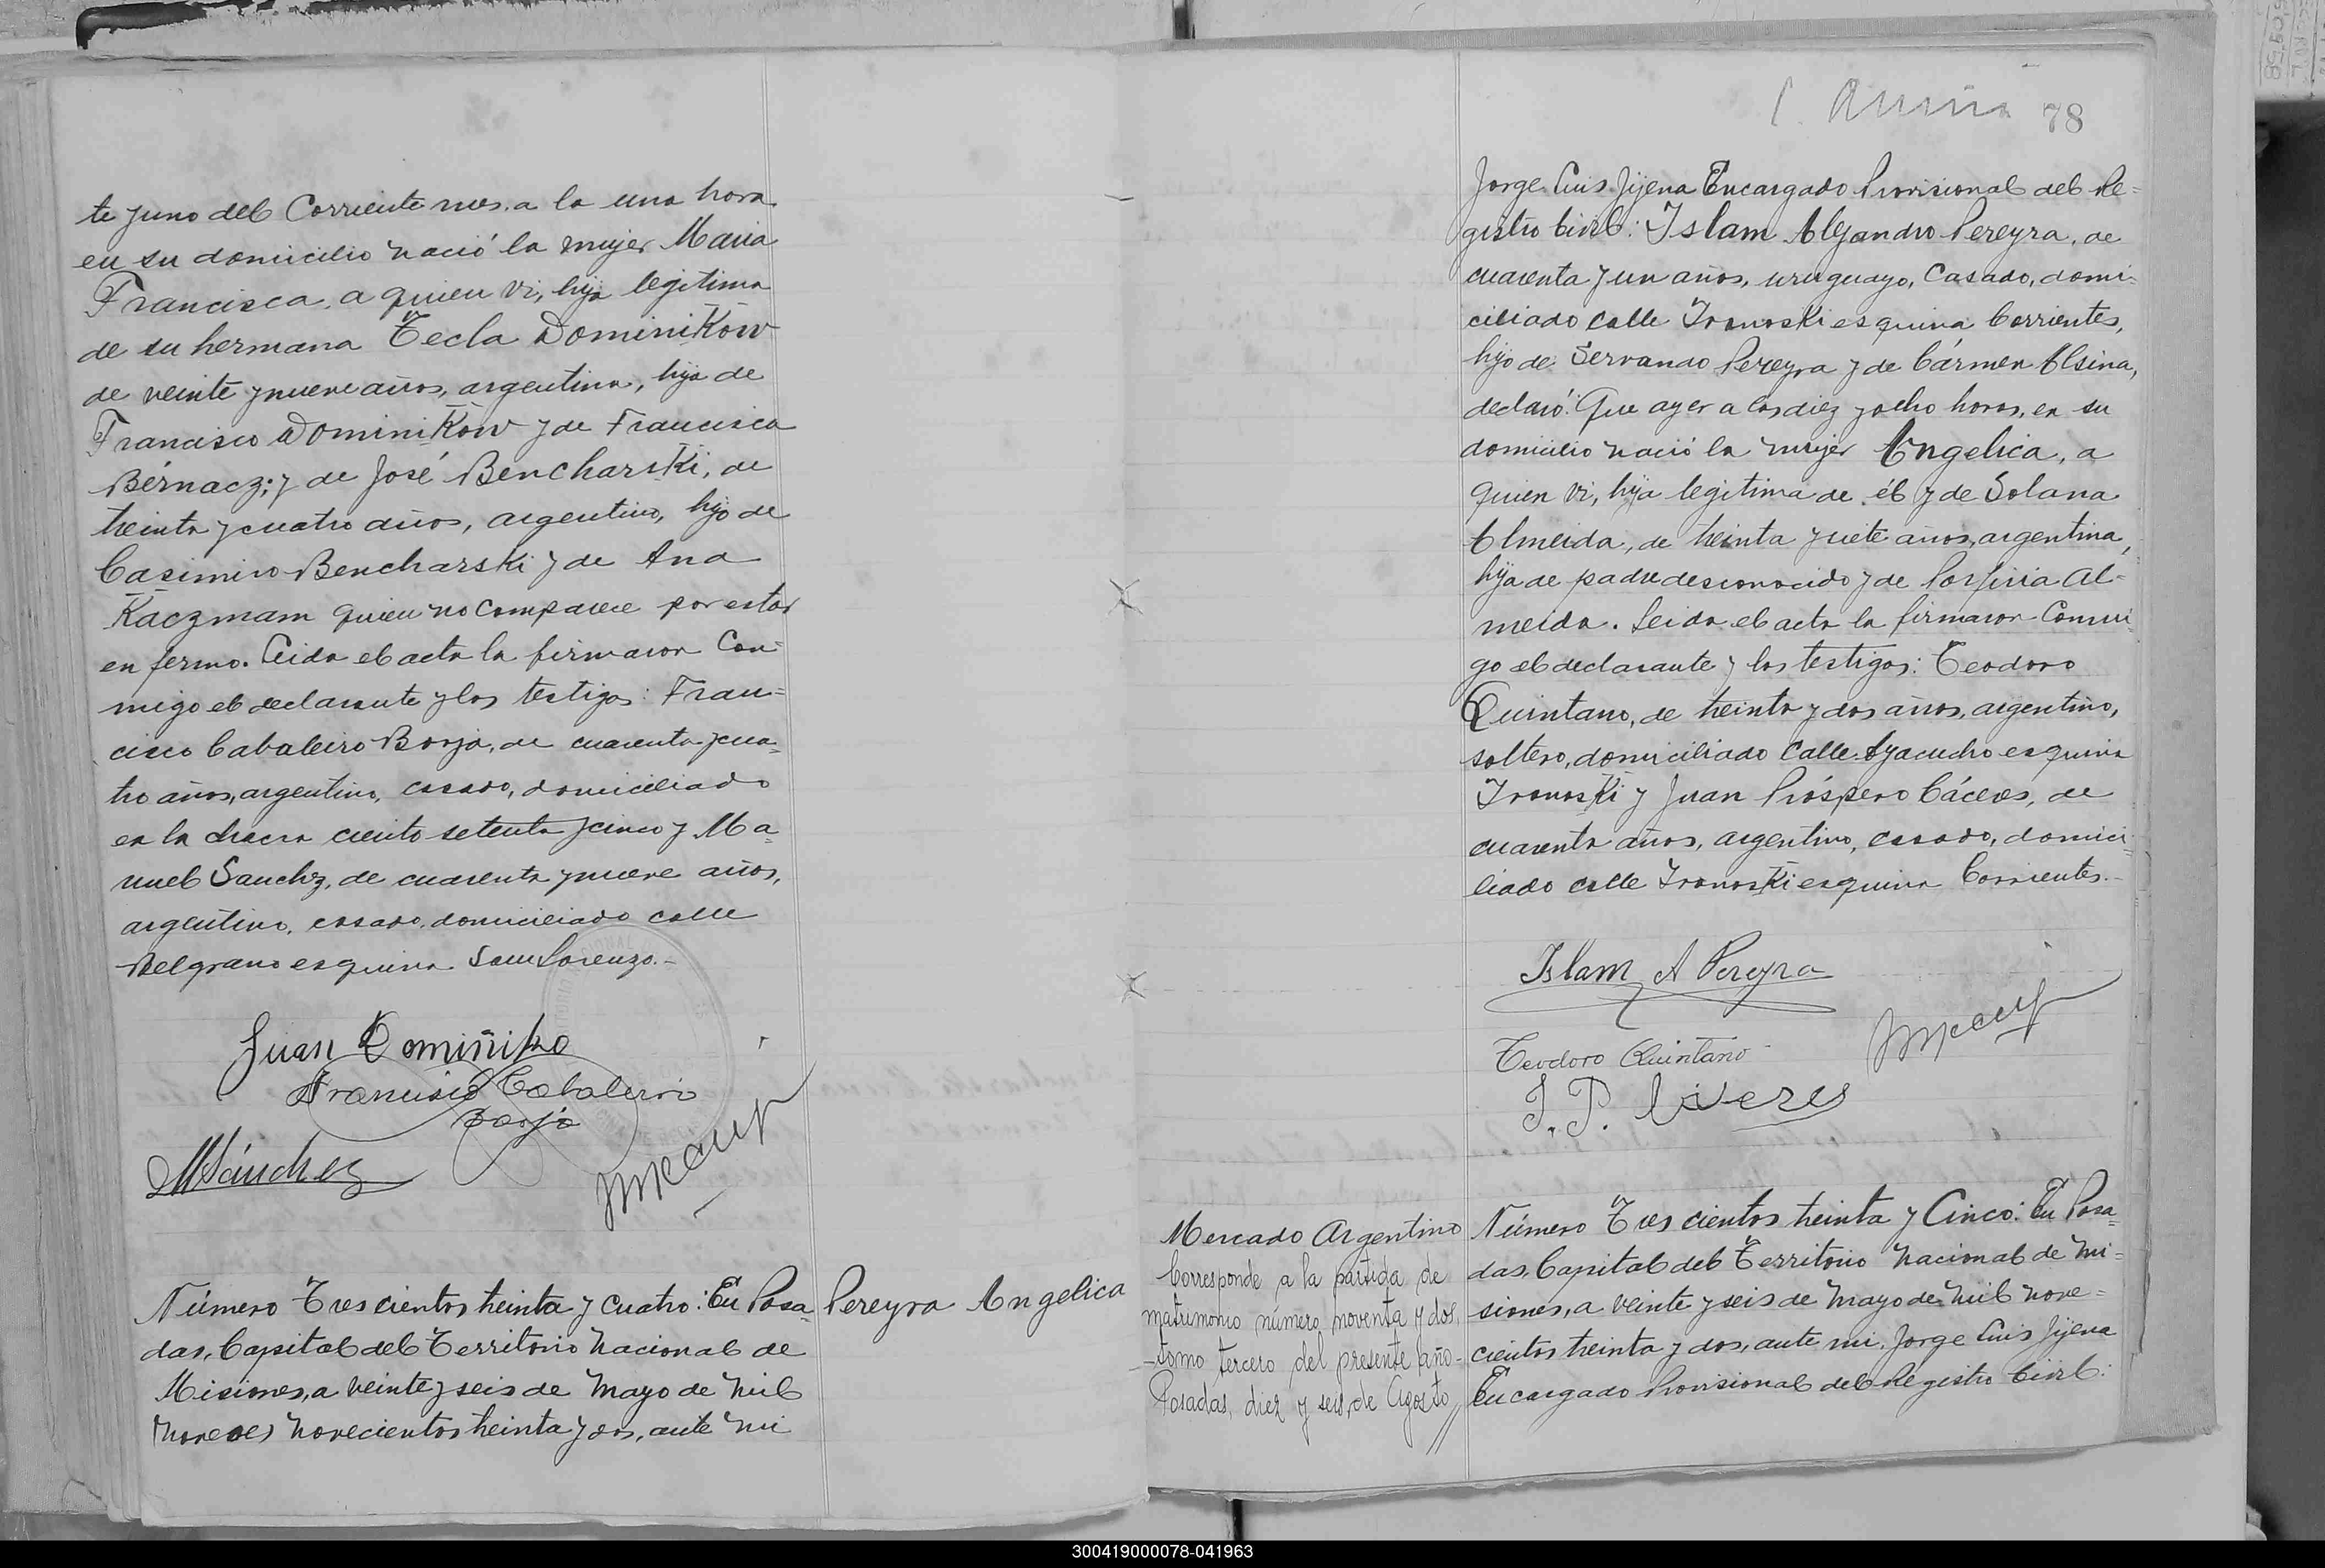 te y uno del Corriente mes, a la una hora
en su domicilio nació la mujer Maria
Francisca, a quien vi, hija legitima
de su hermana Tecla Dominikow
de veinte y nueve años, argentina, hija de
Francisco Dominikow y de Francisca
Bérnacz; y de José Bencharski, de
treinta y cuatro años, argentino, hijo de
Casimiro Bencharski y de Ana
Kaczmam quien no comparece por estar
enfermo. Leida el acta la firmaron Con=
migo el declarante y los testigos: Fran=
cisco Cabaleiro Borja, de cuarenta y cua=
tro años, argentino, casado, domiciliado
en la chacra ciento setenta y cinco y Ma=
nuel Sanchz, de cuarenta y nueve años,
argentino, casado, domiciliado calle
Belgrano esquina San Lorenzo.-
Juan Dominiko
Francisco Cabaleiro
Borja
MSánchez
Número Trescientos treinta y cuatro: En Posa=
das, Capital del Territorio Nacional de
Misiones, a veinte y seis de Mayo de Mil
novecientos treinta y dos, ante mi
Pereyra Angelica
78
Jorge Luis Jijena Encargado Provisional del Re=
gistro Civil: Islam Alejandro Pereyra, de
cuarenta y un años, uruguayo, Casado, domi=
ciliado calle Iranoski esquina Corrientes,
hijo de Servando Pereyra y de Cármen Alsina,
declaró: Que ayer a las diez y ocho horas, en su
domicilio nació la mujer Angelica, a
quien vi, hija legitima de él y de Solana
Almeida, de treinta y siete años, argentina,
hija de padre desconocido y de Porfiria Al=
meida. Leida el acta la firmaron Conmi=
go el declarante y los testigos: Teodoro
Quintano, de treinta y dos años, argentino,
soltero, domiciliado Calle Ayacucho esquina
Iranoski y Juan Próspero Cáceres, de
cuarenta años, argentino, casado, domici=
liado calle Iranoski esquina Corrientes.-
Islam A Pereyra
Teodoro Quintano
J. P. Cáceres
Mercado Argentino
Corresponde a la partida de
matrimonio número noventa y dos,
tomo tercero del presente año-
Posadas, diez y seis de Agosto //
Número Trescientos treinta y Cinco: En Posa=
das, Capital del Territorio Nacional de Mi=
siones, a veinte y seis de Mayo de Mil nove=
cientos treinta y dos, ante mi, Jorge Luis Jijena
Encargado Provisional del Registro Civil:
300419000078-041963